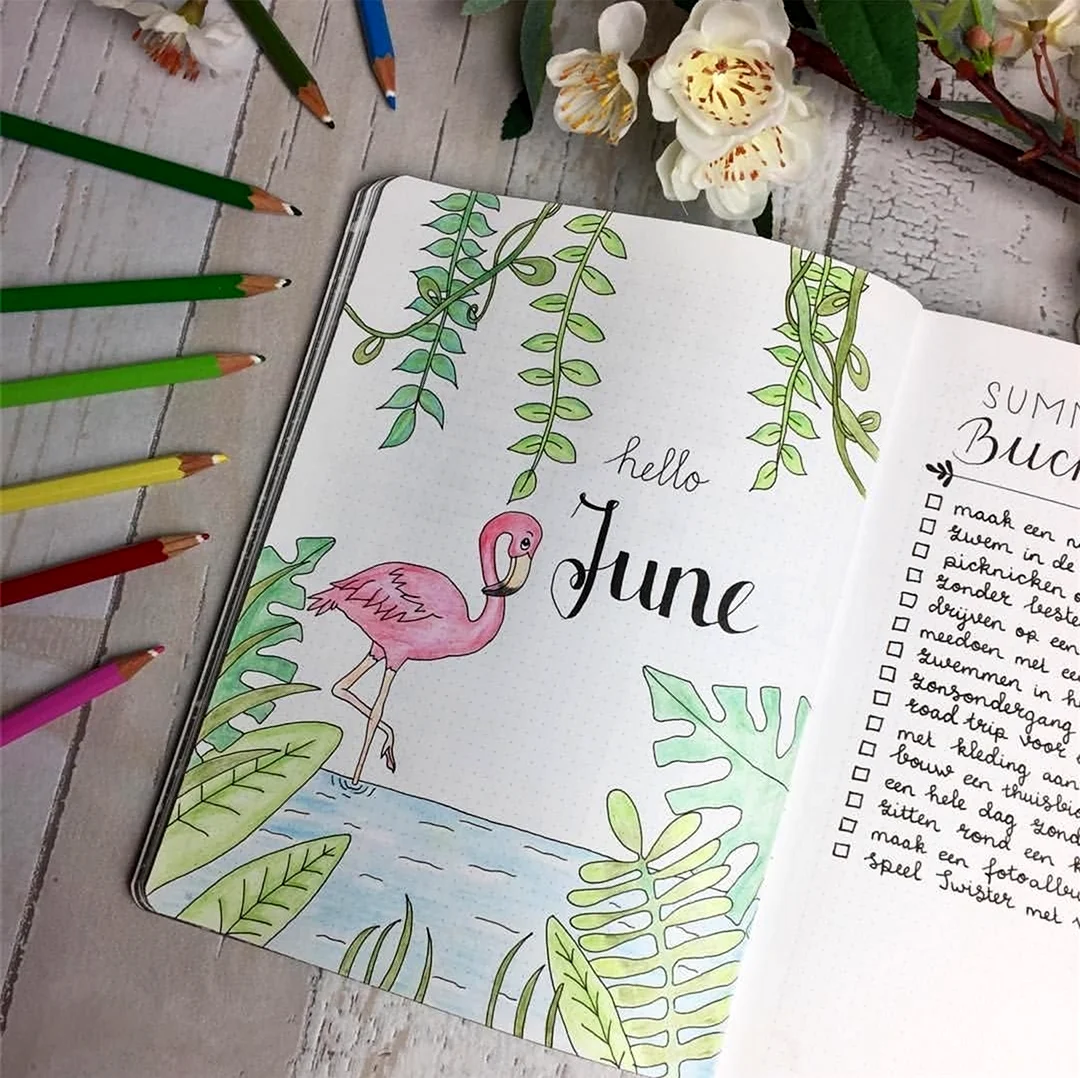 hello
June
SUMM
Buck
maak een
zwem in de
picknicken o
zonder beste
drijven op een
meedoen met ee
zwemmen in h
zonsondergang
road trip voor
met kleding aan
bouw een thuisbio
een hele dag zond
zitten rond een k
maak een fotoalbu
speel Twister met